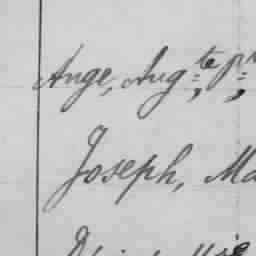 Ange, Aug.te, p.
Joseph, Ma